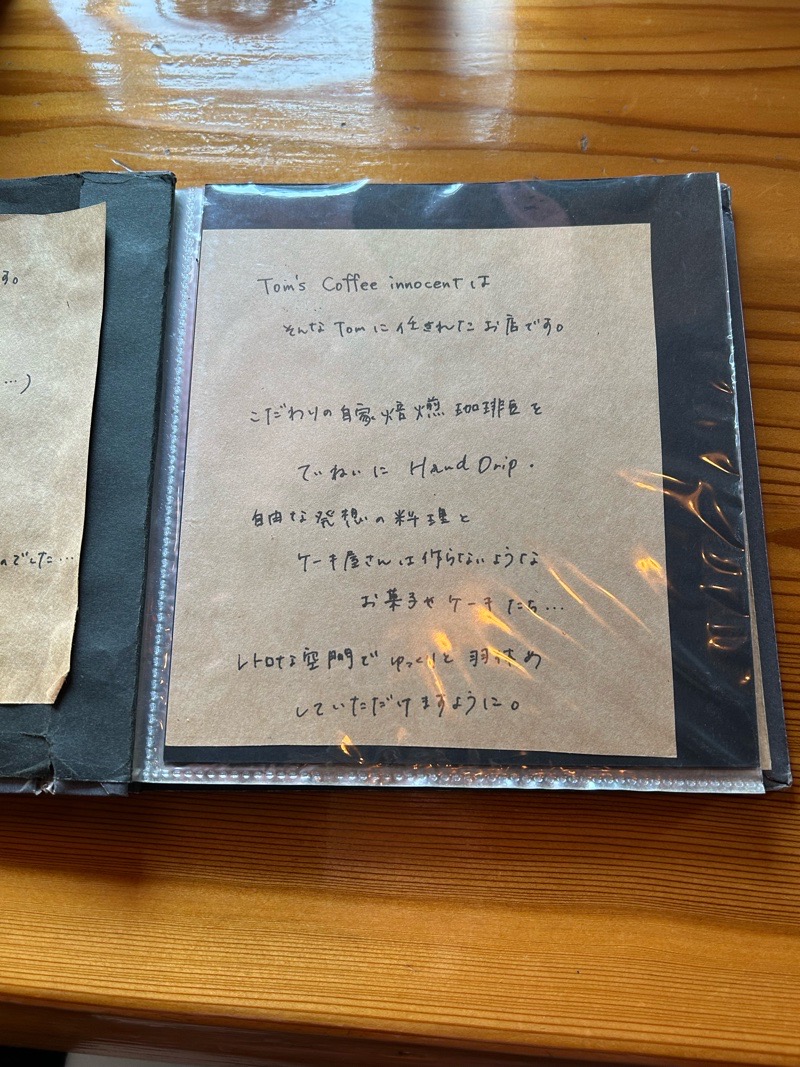 す。
…)
のでした…
Tom's Coffee innocentは
そんなTomに任されたお店です。
こだわりの自家焙煎珈琲豆を
ていねいに Hand Drip.
自由な発想の料理と
ケーキ屋さんは作らないような
お菓子やケーキたち…
レトロな空間でゆっくりと羽休め
していただけますように。